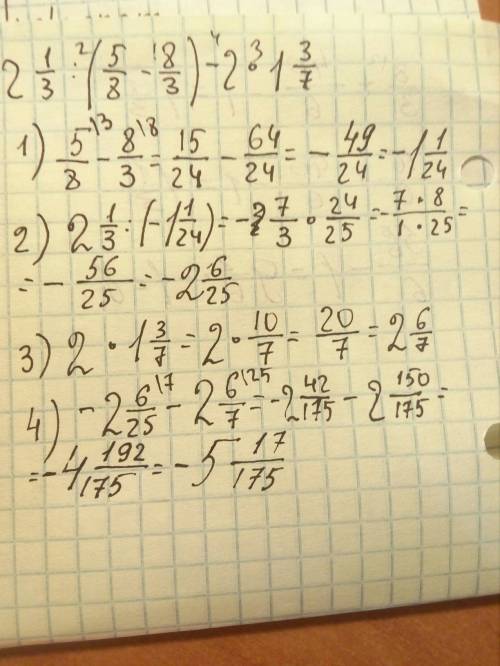 2 1/3 :² (5/8 -¹ 8/3) -⁴ 2 ·³ 1 3/7
1) 5/8 \3 - 8/3 \8 = 15/24 - 64/24 = - 49/24 = -1 1/24
2) 2 1/3 : (-1 1/24) = - 7/3 · 24/25 = - 7·8/1·25 =
= - 56/25 = -2 6/25
3) 2 · 1 3/7 = 2 · 10/7 = 20/7 = 2 6/7
4) -2 6/25 \7 - 2 6/7 \25 = -2 42/175 - 2 150/175 =
= -4 192/175 = -5 17/175